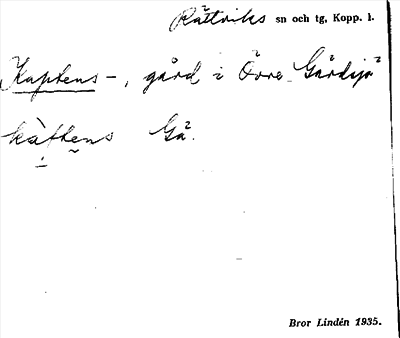 Rättviks sn och tg, Kopp. l.
Kaptens-, gård i Övre Gärdsjö
kàftens Gå.
Bror Lindén 1935.